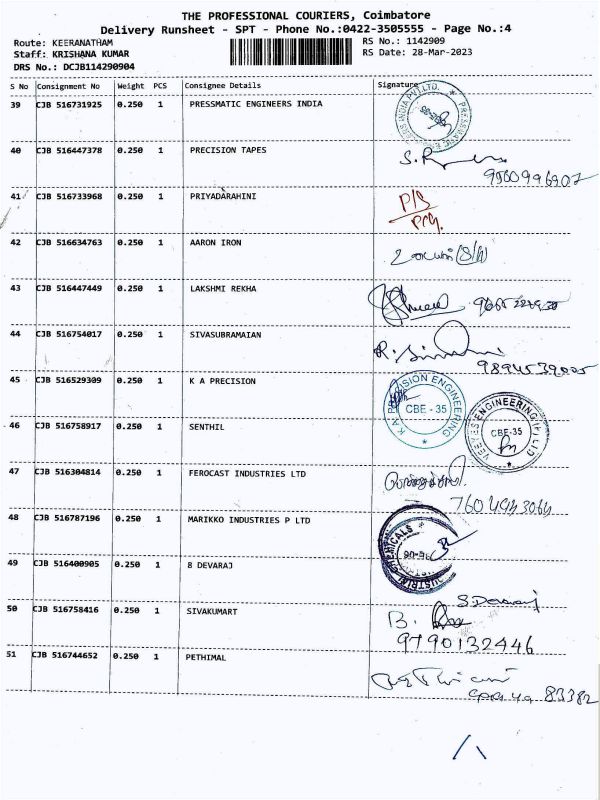 THE PROFESSIONAL COURIERS, Coimbatore
Delivery Runsheet - SPT - Phone No.:0422-3505555 - Page No.:4
Route: KEERANATHAM
RS No.: 1142909
Staff: KRISHANA KUMAR
RS Date: 28-Mar-2023
DRS No.: DCJB114290904
S No Consignment No Weight PCS Consignee Details Signature
39 CJB 516731925 0.250 1 PRESSMATIC ENGINEERS INDIA
40 CJB 516447378 0.250 1 PRECISION TAPES
9560996907
41 CJB 516733968 0.250 1 PRIYADARAHINI
42 CJB 516634763 0.250 1 AARON IRON
43 CJB 516447449 0.250 1 LAKSHMI REKHA
44 CJB 516754017 0.250 1 SIVASUBRAMAIAN
45 CJB 516529309 0.250 1 K A PRECISION
K A PRECISION ENGINEERING
CBE - 35
46 CJB 516758917 0.250 1 SENTHIL
CBE-35
47 CJB 516304814 0.250 1 FEROCAST INDUSTRIES LTD
48 CJB 516787196 0.250 1 MARIKKO INDUSTRIES P LTD
49 CJB 516400905 0.250 1 8 DEVARAJ
S Devaraj
50 CJB 516758416 0.250 1 SIVAKUMART
9790132446
51 CJB 516744652 0.250 1 PETHIMAL
83382